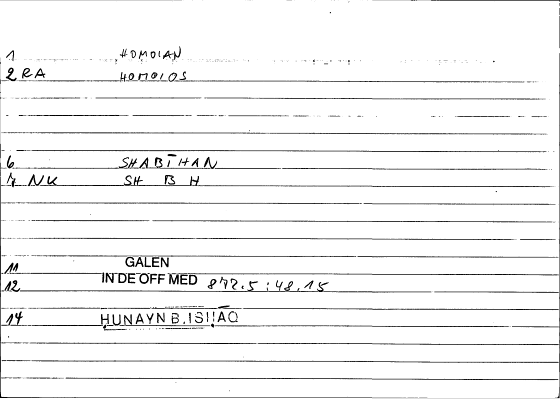 1 HOMOIAN
2 RA HOMOIOS
6 SHABĪHAN
7 NK SH B H
11 GALEN
12 IN DE OFF MED 877.5 : 48.15
14 ḤUNAYN B. ISḤĀQ